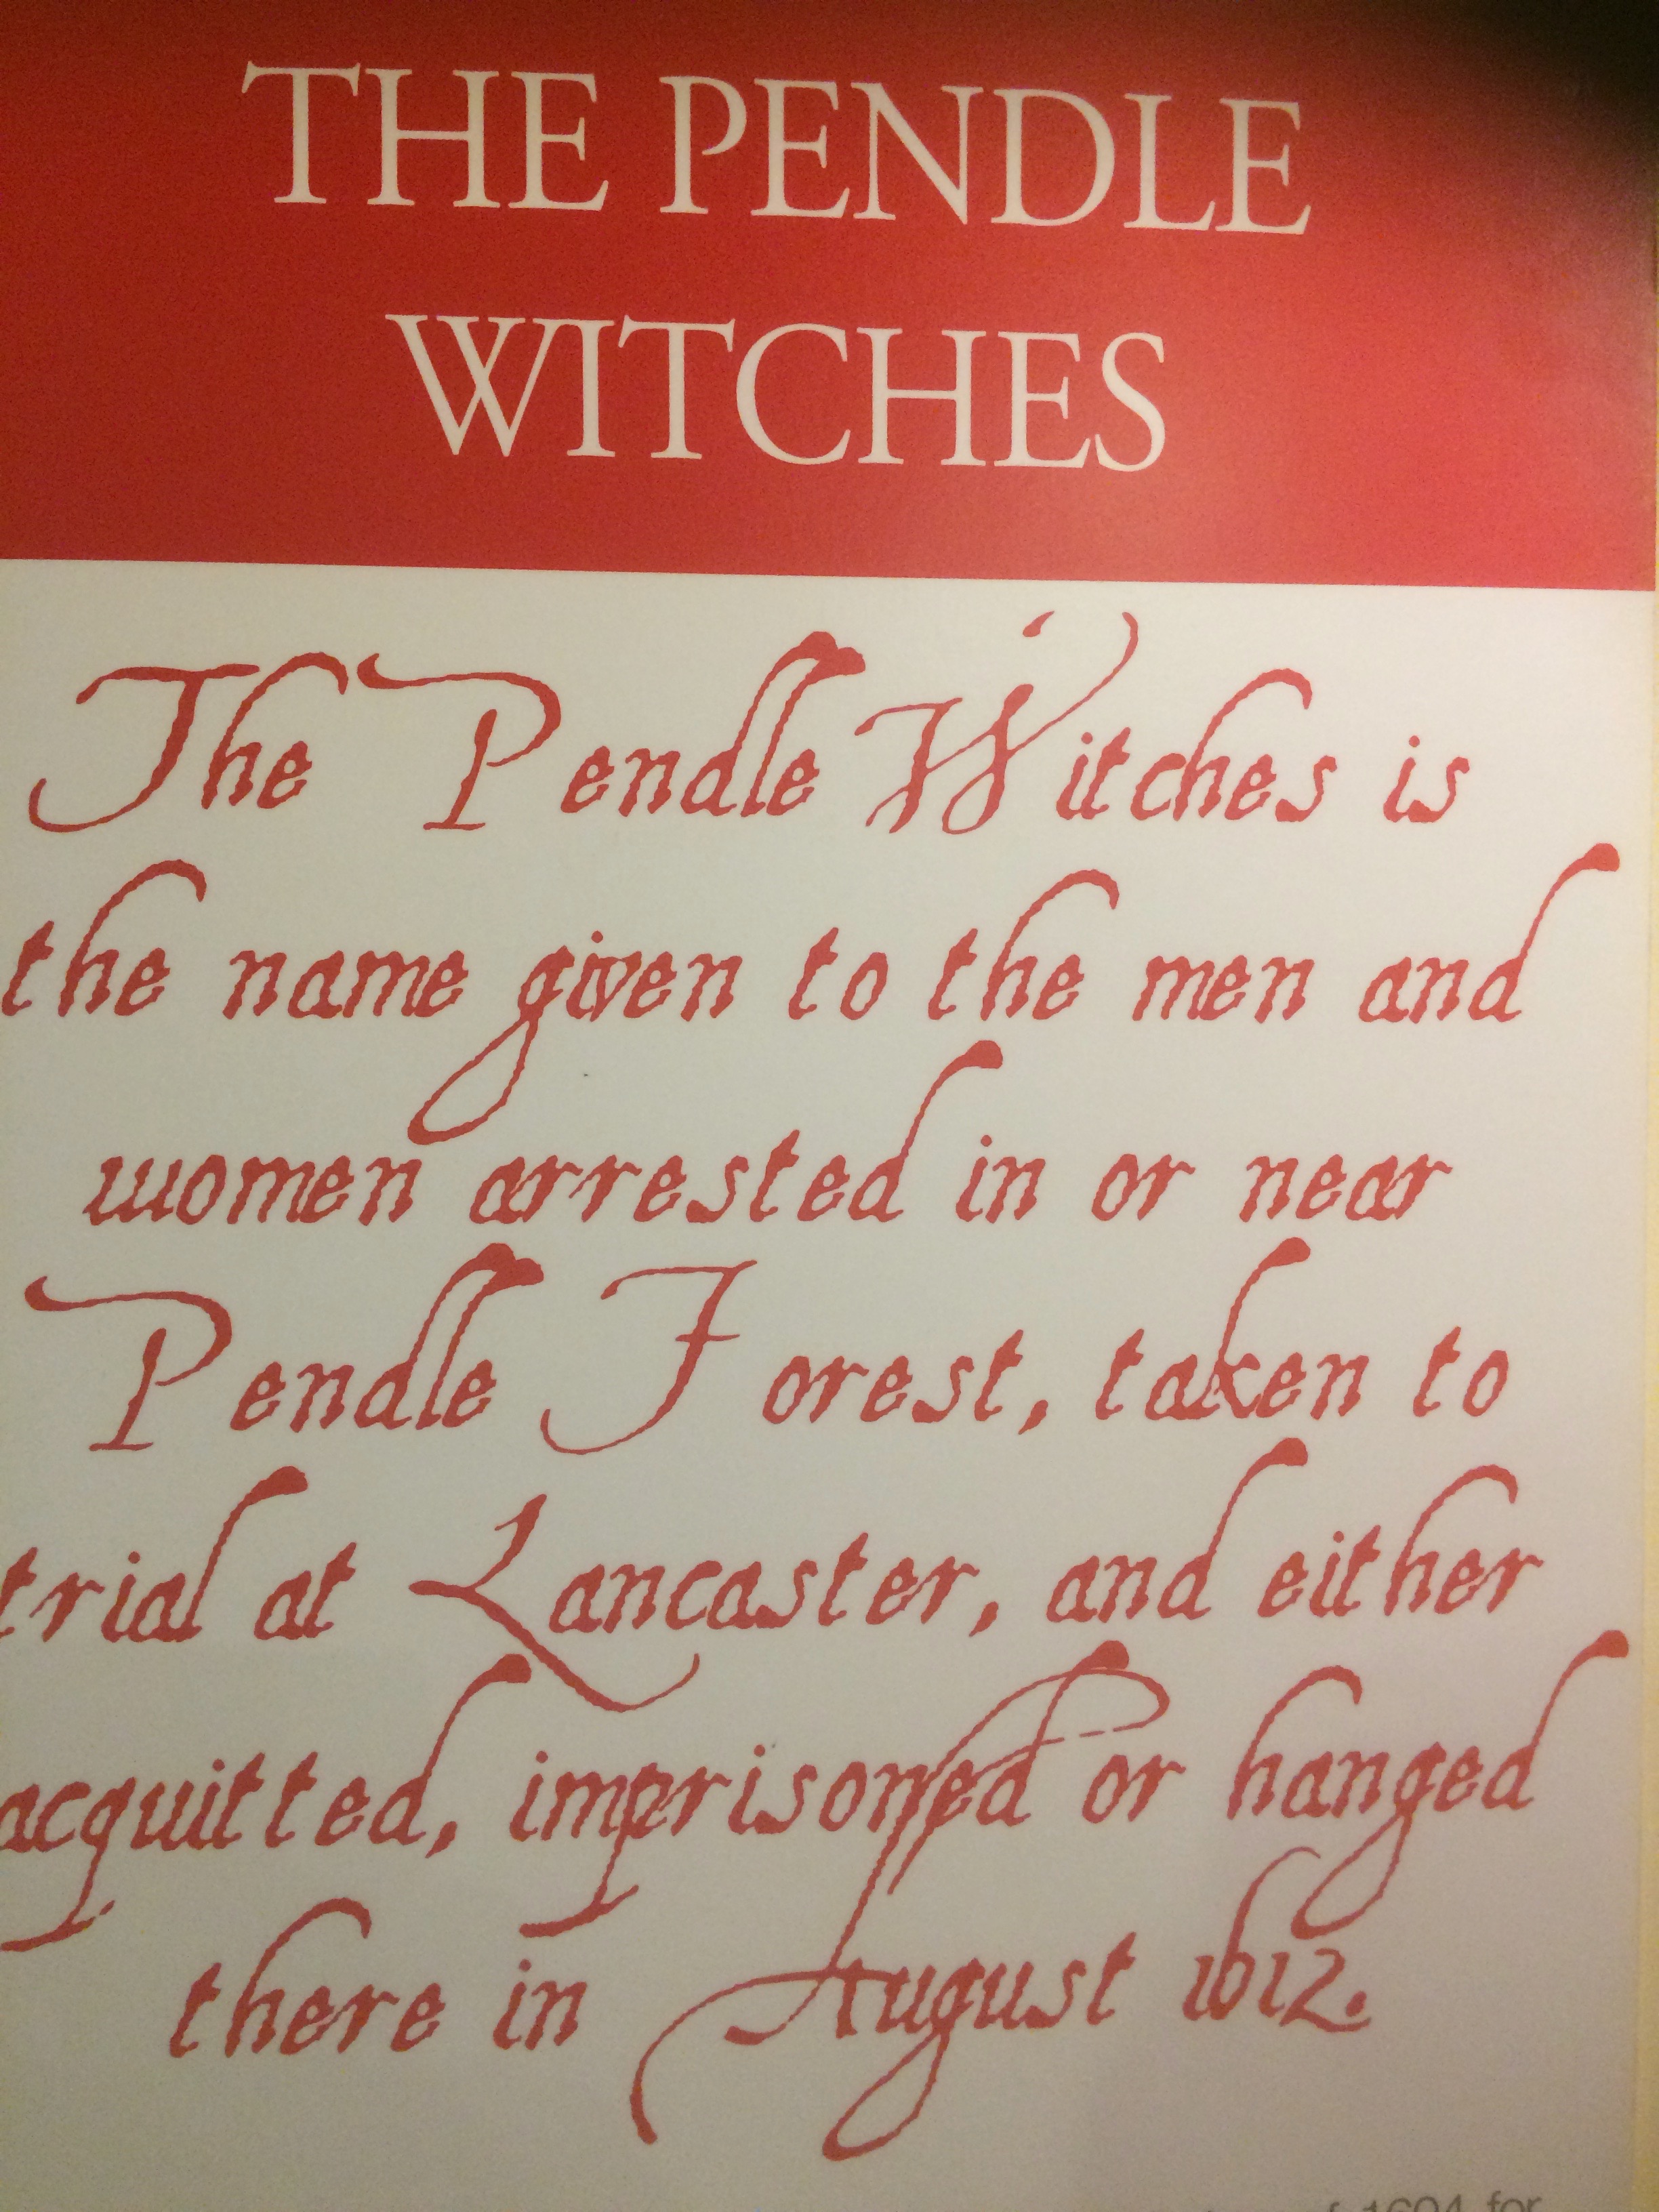 THE PENDLE
WITCHES
The Pendle Witches is
the name given to the men and
women arrested in or near
Pendle Forest, taken to
trial at Lancaster, and either
acquitted, imprisoned or hanged
there in August 1612.
of 1604 for